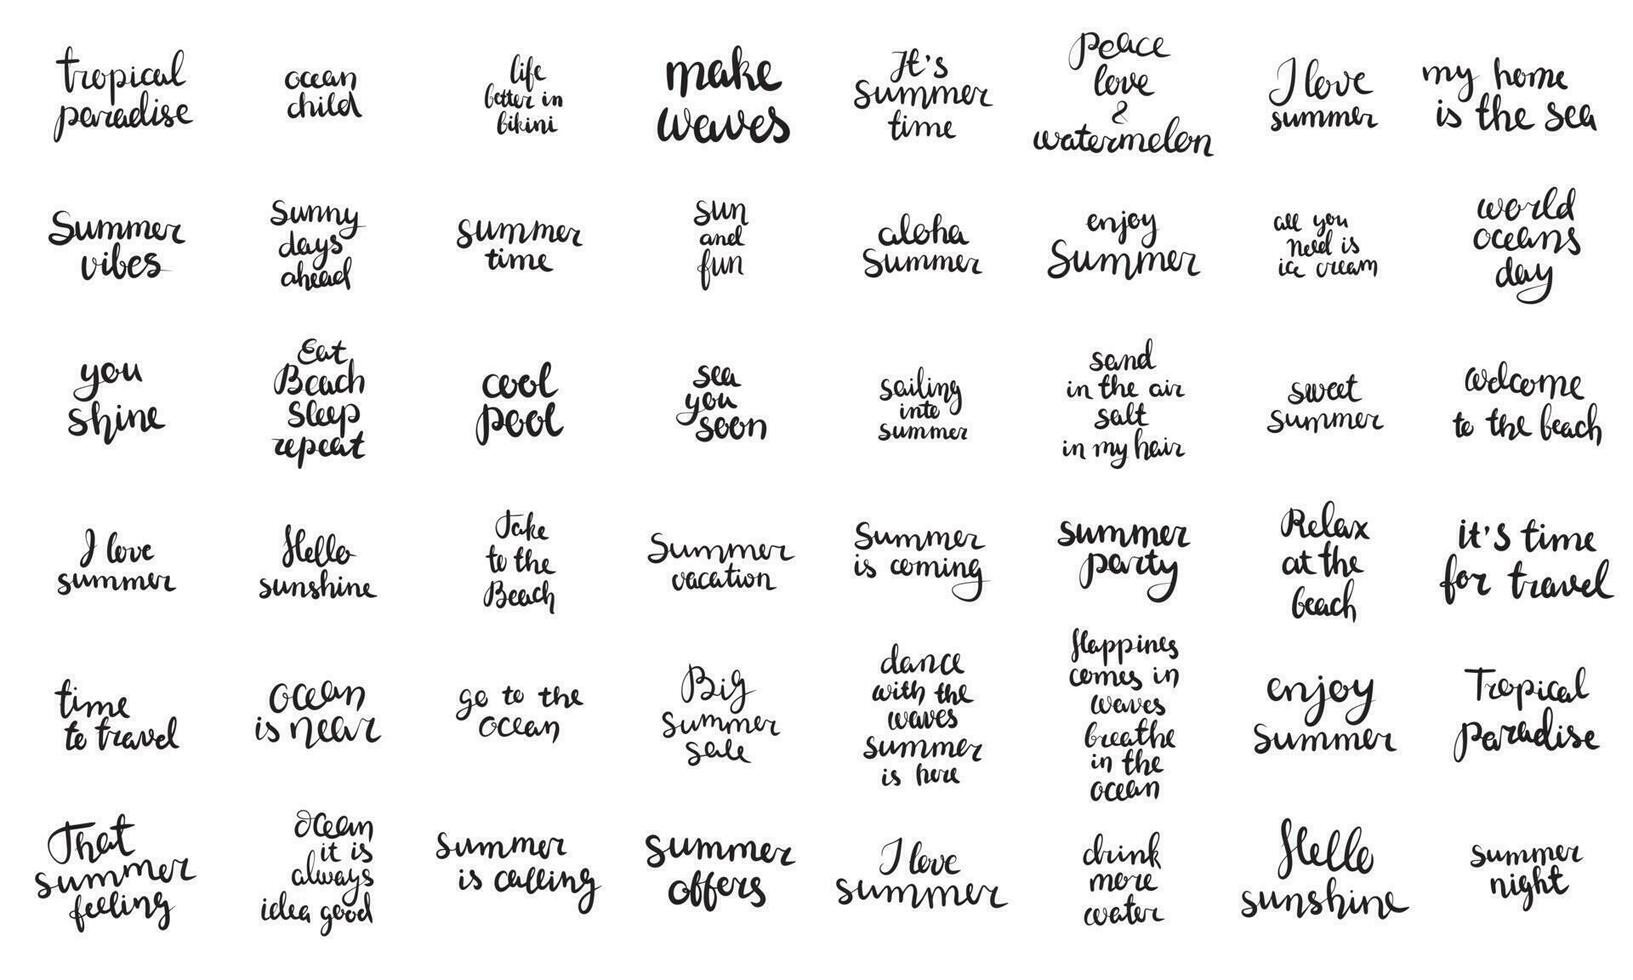 tropical
paradise
ocean
child
life
better in
bikini
make
waves
It's
summer
time
Peace
love
&
watermelon
I love
summer
my home
is the sea
Summer
vibes
Sunny
days
ahead
summer
time
sun
and
fun
aloha
Summer
enjoy
Summer
all you
need is
ice cream
world
oceans
day
you
shine
Eat
Beach
sleep
repeat
cool
pool
sea
you
soon
sailing
into
summer
sand
in the air
salt
in my hair
sweet
summer
welcome
to the beach
I love
summer
Hello
sunshine
Take
to the
Beach
Summer
vacation
Summer
is coming
summer
party
Relax
at the
beach
it's time
for travel
time
to travel
ocean
is near
go to the
ocean
Big
summer
sale
dance
with the
waves
summer
is here
Happines
comes in
waves
breathe
in the
ocean
enjoy
summer
Tropical
paradise
That
summer
feeling
Ocean
it is
always
idea good
summer
is calling
summer
offers
I love
summer
drink
more
water
Hello
sunshine
summer
night